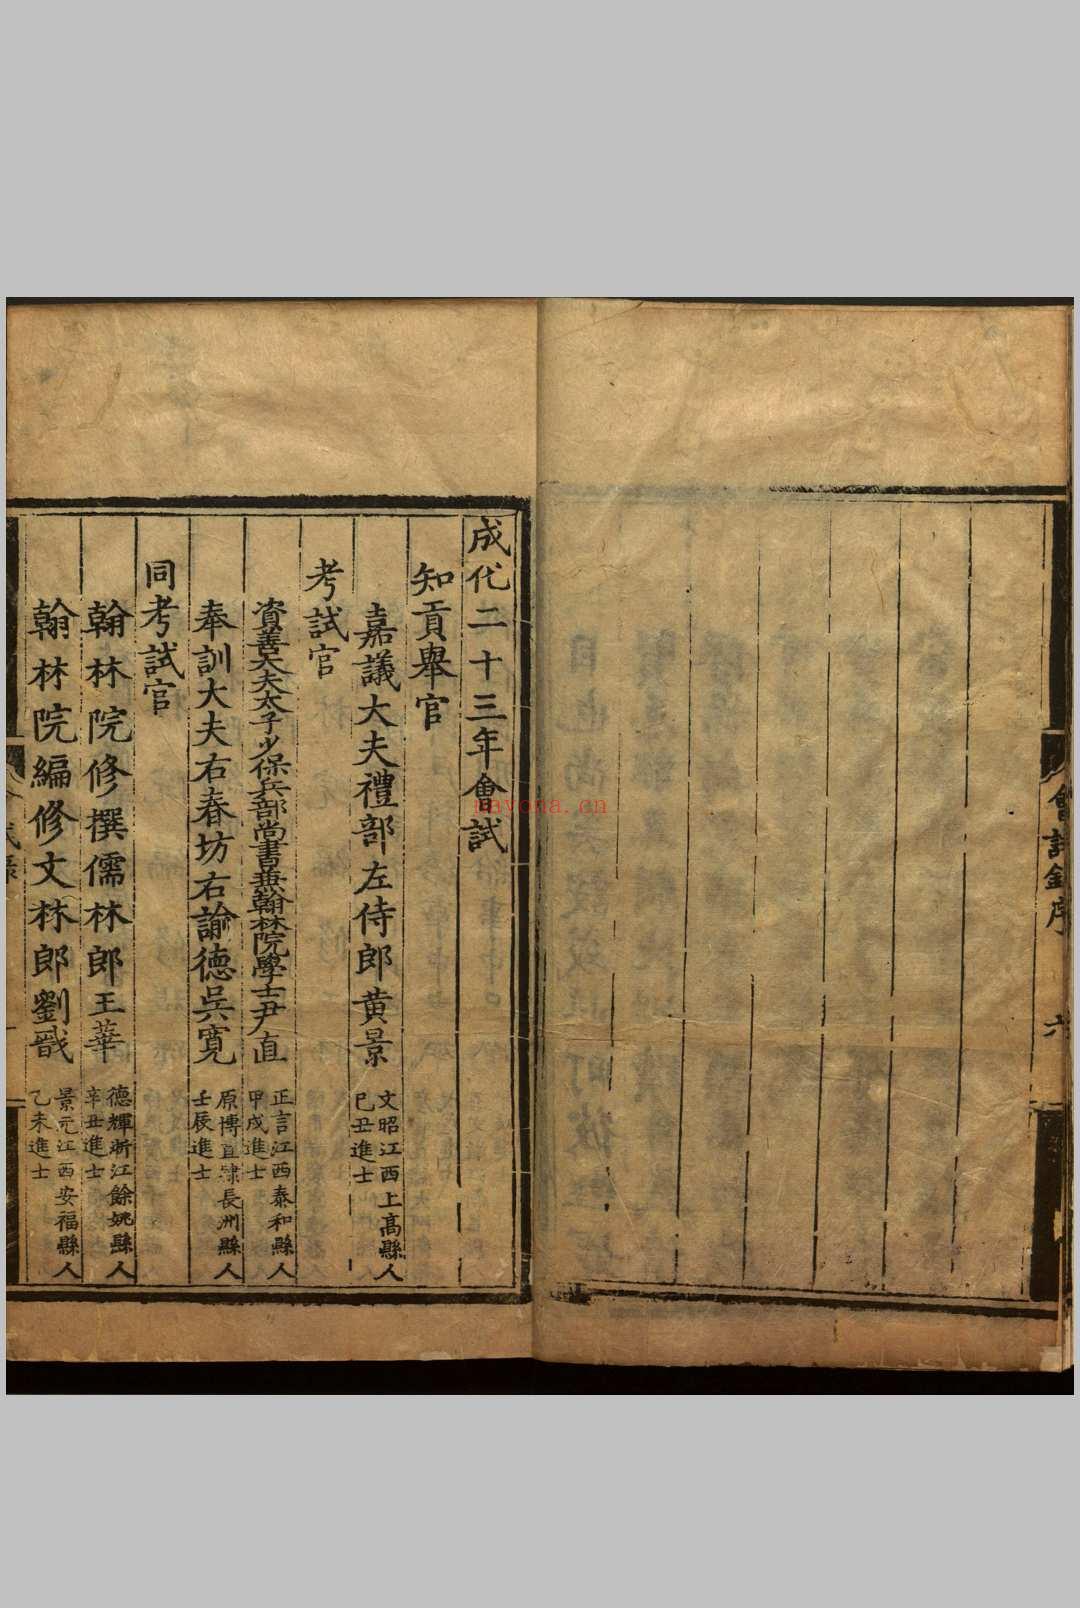 會試錄序
六
成化二十三年會試
知貢舉官
嘉議大夫禮部左侍郎黃景
文昭江西上高縣人
己丑進士
考試官
資善大夫太子少保兵部尚書兼翰林院學士尹直
正言江西泰和縣人
甲戌進士
奉訓大夫右春坊右諭德吳寬
原博直隸長洲縣人
壬辰進士
同考試官
翰林院修撰儒林郎王華
德輝浙江餘姚縣人
辛丑進士
翰林院編修文林郎劉戩
景元江西安福縣人
乙未進士
nayona.cn